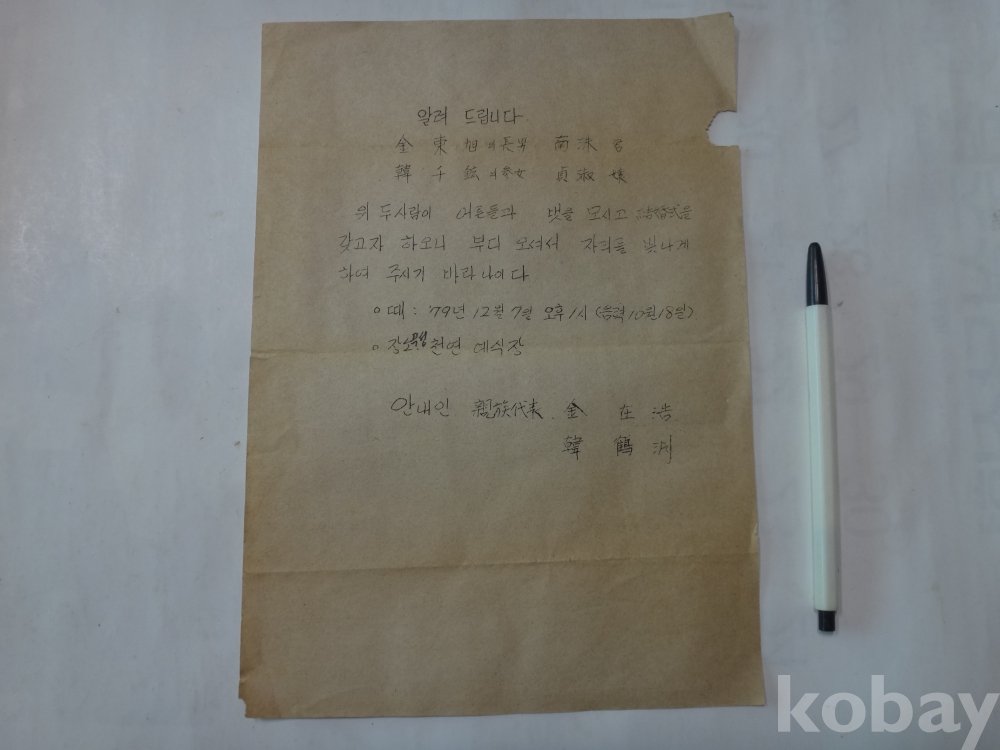 알려 드립니다
金 東 旭의 長男 南洙 君
韓 千 鉉의 參女 貞淑 孃
위 두사람이 어른들과 벗을 모시고 結婚式을
갖고자 하오니 부디 오셔서 자리를 빛나게
하여 주시기 바라나이다
○때 : '79년 12월 7일 오후 1시 (음력 10월 18일)
○장소: 천연 예식장
안내인 親族代表. 金 在 浩
韓 鶴 洲
kobay